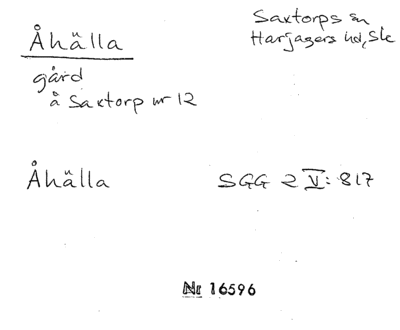 Åhälla
Saxtorps sn
Harjagers hd, Sk
gård
å Saxtorp nr 12
Åhälla
SGG 2 V: 817
Nr 16596